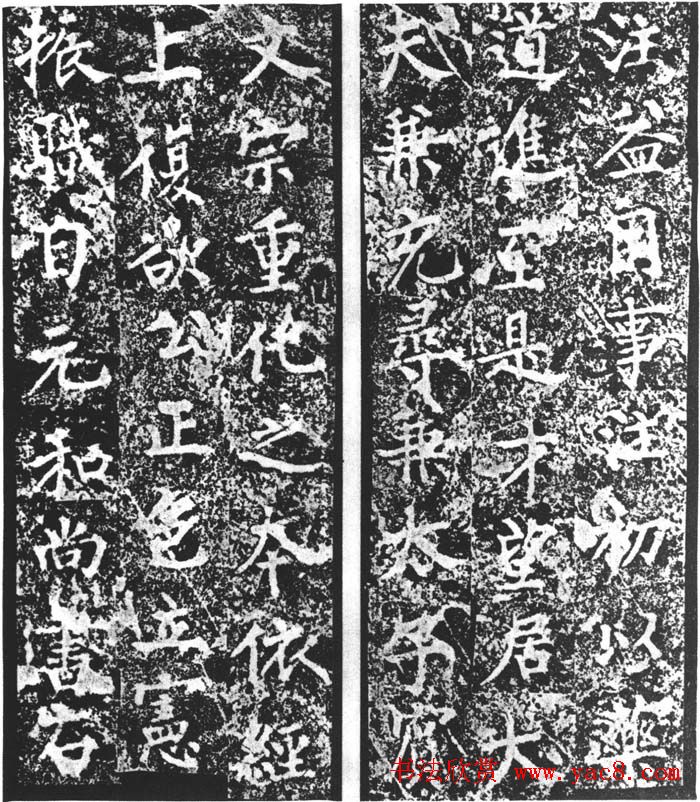 注益用事注初以藥
道進至是才望居大
夫兼充尋兼太子賓
文宗重之本依經
上復欲公正色立憲
振職自元和尚書右
书法欣赏 www.yac8.com